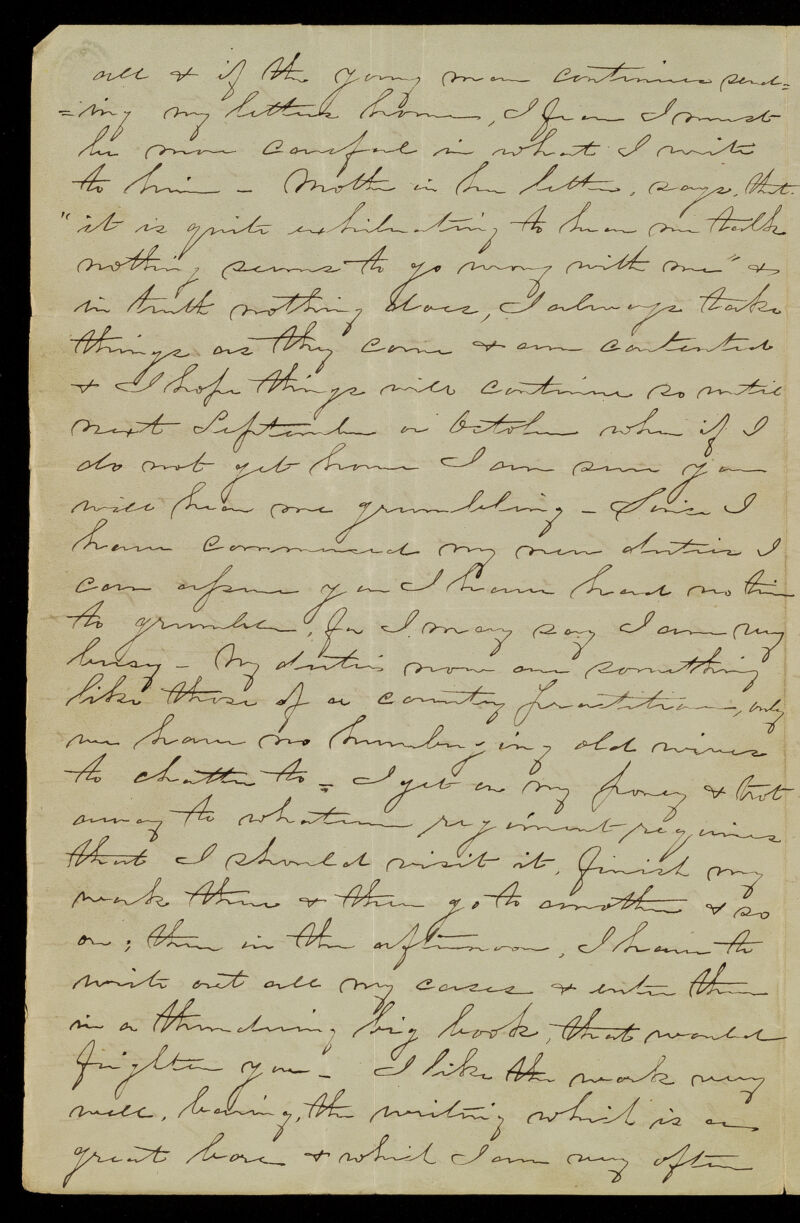 all & if the young man continues send=
=ing my letters home, I fear I must
be more careful in what I write
to him - Mother in her letter, says, that
"it is quite exhilarating to hear me talk
nothing seems to go wrong with me" &
in truth nothing does, I always take
things as they come & am contented
& I hope things will continue so until
next September or October when if I
do not get home I am sure you
will hear me grumbling - Since I
have commenced my new duties I
can assure you I have had no time
to grumble, for I may say I am very
busy - My duties now are something
like those of a country practitioner, only
we have no humbuging old wives
to chatter to - I get on my poney & trot
away to whatever regiment requires
that I should visit it, finish my
work there & then go to another & so
on; then in the afternoon, I have to
write out all my cases & enter them
in a thundering big book, that would
frighten you - I like the work very
well, baring, the writing which is a
great bore & which I am very often